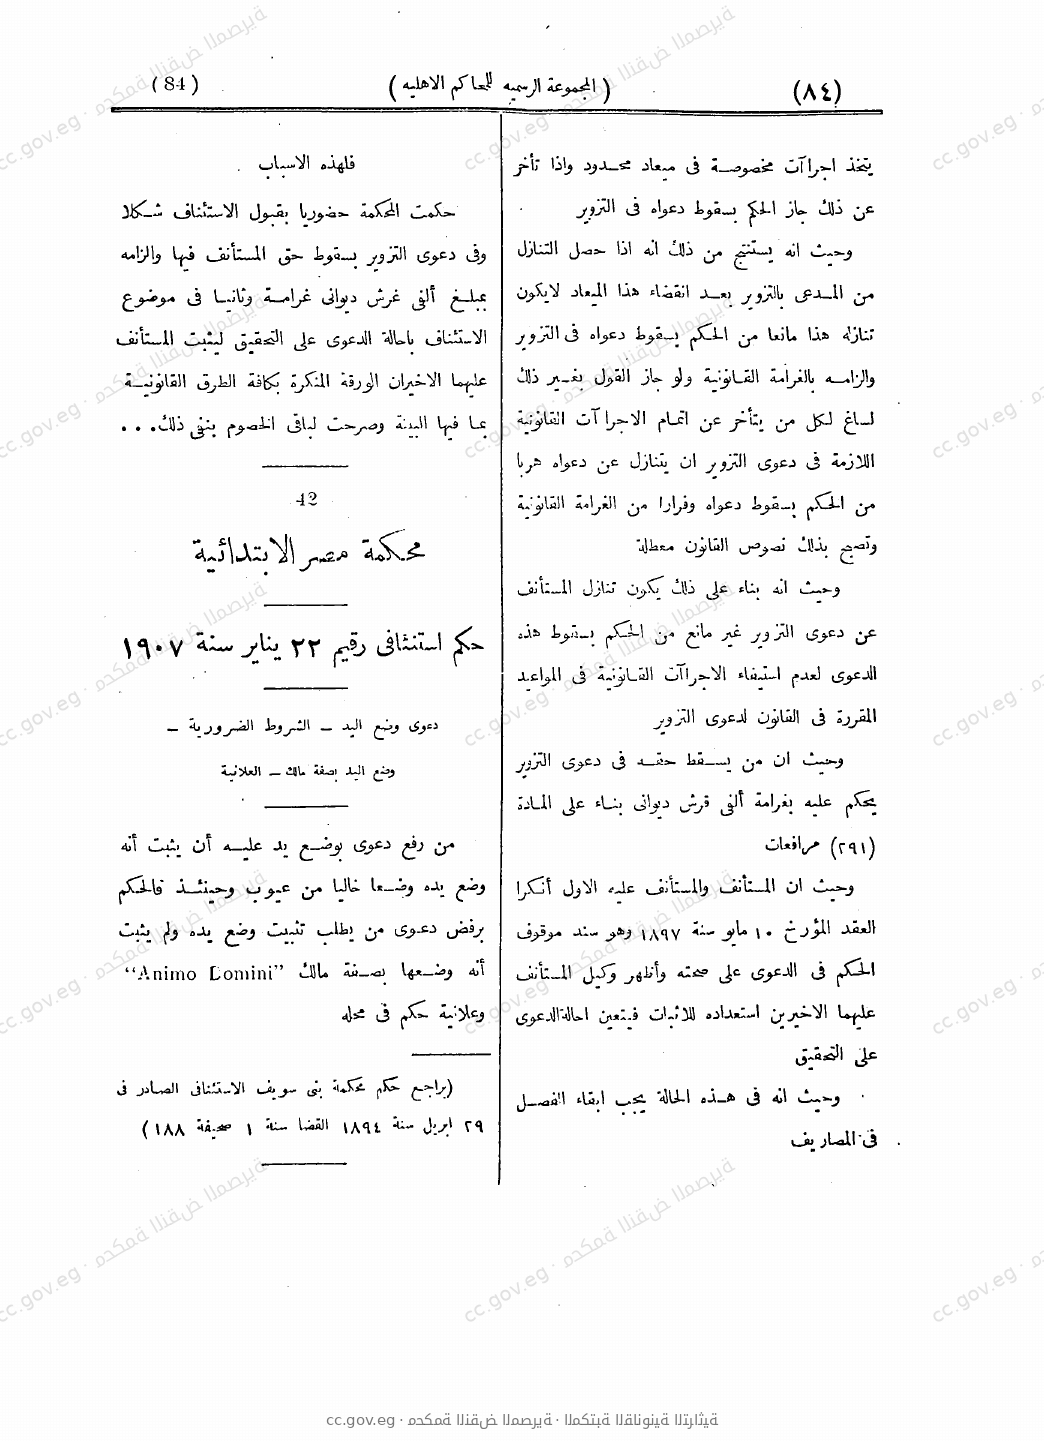 (٨٤)
(المجموعة الرسميه للمحاكم الاهليه)
(84)
يتخذ اجراآت مخصوصة فى ميعاد محدود واذا تأخر
عن ذلك جاز الحكم بسقوط دعواه فى التزوير
وحيث انه يستنتج من ذلك انه اذا حصل التنازل
من المدعى بالتزوير بعد انقضاء هذا الميعاد لايكون
تنازله هذا مانعا من الحكم بسقوط دعواه فى التزوير
والزامه بالغرامة القانونية ولو جاز القول بغير ذلك
لساغ لكل من يتأخر عن اتمام الاجراآت القانونية
اللازمة فى دعوى التزوير ان يتنازل عن دعواه هربا
من الحكم بسقوط دعواه وفرارا من الغرامة القانونية
وتصبح بذلك نصوص القانون معطلة
وحيث انه بناء على ذلك يكون تنازل المستأنف
عن دعوى التزوير غير مانع من الحكم بسقوط هذه
الدعوى لعدم استيفاء الاجراآت القانونية فى المواعيد
المقررة فى القانون لدعوى التزوير
وحيث ان من يسقط حقه فى دعوى التزوير
يحكم عليه بغرامة ألفى قرش ديوانى بناء على المادة
(٢٩١) مرافعات
وحيث ان المستأنف والمستأنف عليه الاول أنكرا
العقد المؤرخ ١٠ مايو سنة ١٨٩٧ وهو سند موقوف
الحكم فى الدعوى على صحته وأظهر وكيل المستأنف
عليهما الاخيرين استعداده للاثبات فيتعين احالة الدعوى
على التحقيق
وحيث انه فى هذه الحالة يجب ابقاء الفصل
فى المصاريف
فلهذه الاسباب
حكمت المحكمة حضوريا بقبول الاستئناف شكلا
وفى دعوى التزوير بسقوط حق المستأنف فيها والزامه
بمبلغ ألفى غرش ديوانى غرامة وثانيا فى موضوع
الاستئناف باحالة الدعوى على التحقيق ليثبت المستأنف
عليهما الاخيران الورقة المنكرة بكافة الطرق القانونية
بما فيها البينة وصرحت لباقى الخصوم بنفى ذلك...
42
محكمة مصر الابتدائية
حكم استئنافى رقيم ٢٢ يناير سنة ١٩٠٧
دعوى وضع اليد – الشروط الضرورية –
وضع اليد بصفة مالك – العلانية
من رفع دعوى بوضع يد عليه أن يثبت أنه
وضع يده وضعا خاليا من عيوب وحينئذ فالحكم
برفض دعوى من يطلب تثبيت وضع يده ولم يثبت
أنه وضعها بصفة مالك “Animo Domini”
وعلانية حكم فى محله
(يراجع حكم محكمة بنى سويف الاستئنافى الصادر فى
٢٩ ابريل سنة ١٨٩٤ القضا سنة ١ صحيفة ١٨٨)
cc.gov.eg · محكمة النقض المصرية · المكتبة القانونية التراثية